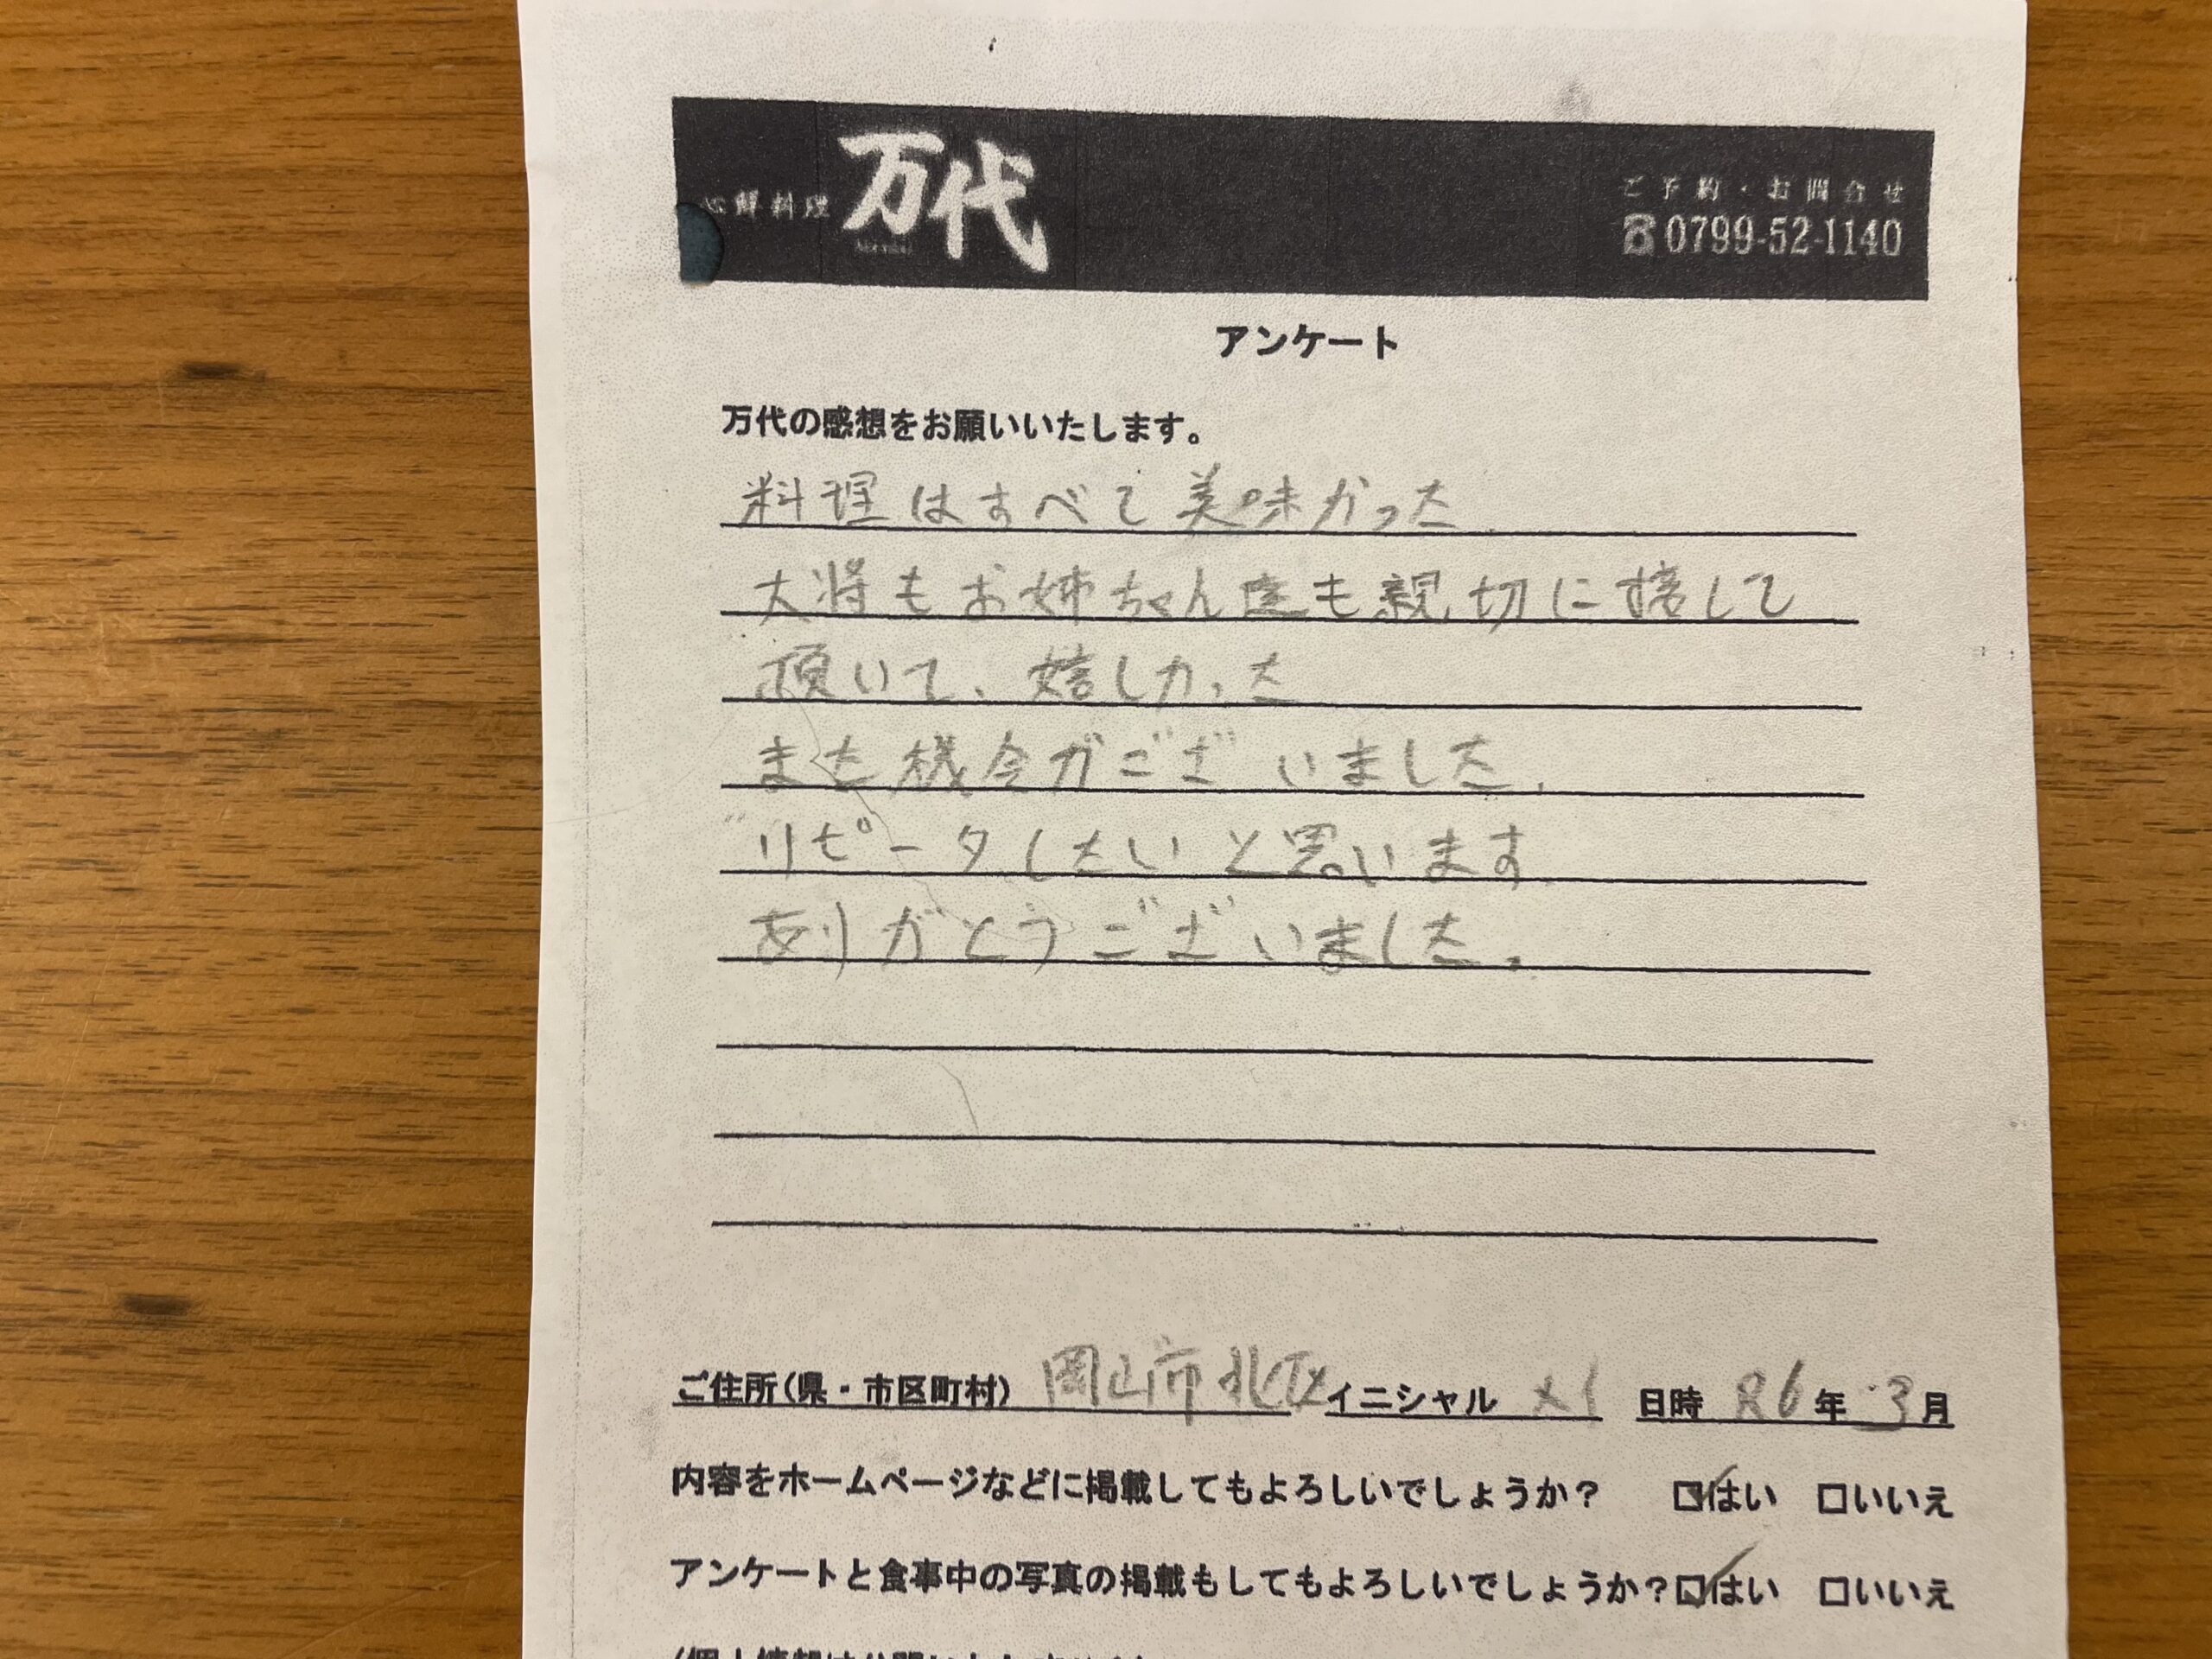 心鮮料理 万代
ご予約・お問合せ
☎0799-52-1140
アンケート
万代の感想をお願いいたします。
料理はすべて美味かった
大将もお姉ちゃん達も親切に接して
頂いて、嬉しかった
また機会がございました、
リピータしたいと思います
ありがとうございました。
ご住所(県・市区町村) 岡山市北区 イニシャル 日時 R6年 3月
内容をホームページなどに掲載してもよろしいでしょうか? ☑はい □いいえ
アンケートと食事中の写真の掲載もしてもよろしいでしょうか?☑はい □いいえ